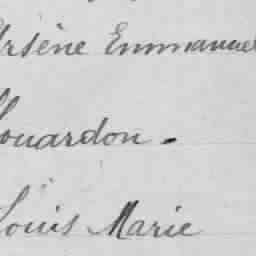 Arsène Emmanuel
Houardon.
Louis Marie